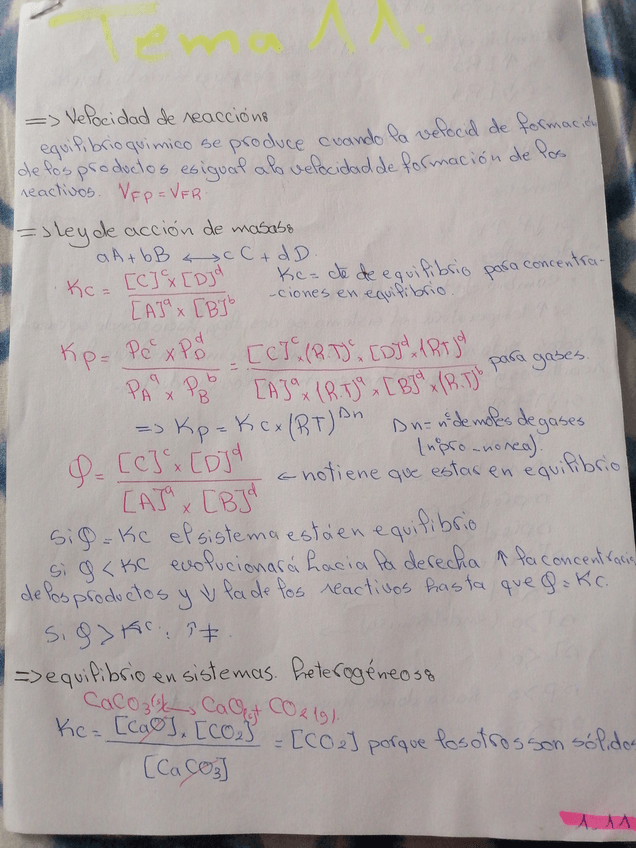 Tema 11:
=> Velocidad de reacción:
equilibrio quimico se produce cuando la velocid de formación
de los productos es igual a la velocidad de formación de los
reactivos. VFP = VFR.
=> Ley de acción de masas:
aA + bB ⟷ cC + dD
Kc = [C]^c × [D]^d / [A]^a × [B]^b
Kc = cte de equilibrio para concentra-
-ciones en equilibrio.
Kp = Pc^c × PD^d / PA^a × PB^b = [C]^c × (R.T)^c × [D]^d × (RT)^d / [A]^a × (R.T)^a × [B]^d × (R.T)^b para gases.
=> Kp = Kc × (RT)^Dn Dn = nº de moles de gases
(nºpro - nº rea).
φ = [C]^c × [D]^d / [A]^a × [B]^d ← no tiene que estar en equilibrio
Si φ = Kc el sistema está en equilibrio
si φ < Kc evolucionará hacia la derecha ↑ la concentració
de los productos y ↓ la de los reactivos hasta que φ = Kc.
Si φ > Kc : ≠.
=> equilibrio en sistemas. heterogéneos:
CaCO3(s) ⟷ CaO(s) + CO2 (g).
Kc = [CaO] . [CO2] / [CaCO3] = [CO2] porque los otros son sólidos